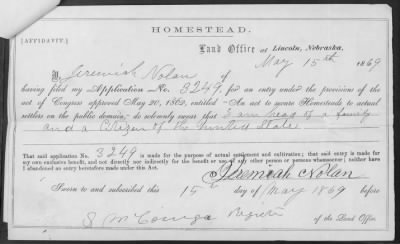 HOMESTEAD.
[AFFIDAVIT.]
Land Office at Lincoln, Nebraska,
May 15th 1869
I, Jeremiah Nolan of
having filed my Application No. 3249, for an entry under the provisions of the
act of Congress approved May 20, 1862, entitled "An act to secure Homesteads to actual
settlers on the public domain," do solemnly swear that I am head of a family
and a Citizen of the United State
That said application No. 3249 is made for the purpose of actual settlement and cultivation; that said entry is made for
my own exclusive benefit, and not directly nor indirectly for the benefit or use of any other person or persons whomsoever; neither have
I abandoned an entry heretofore made under this Act.
Jeremiah Nolan
Sworn to and subscribed this 15 day of May 1869 before
S McConiga Register
of the Land Office.